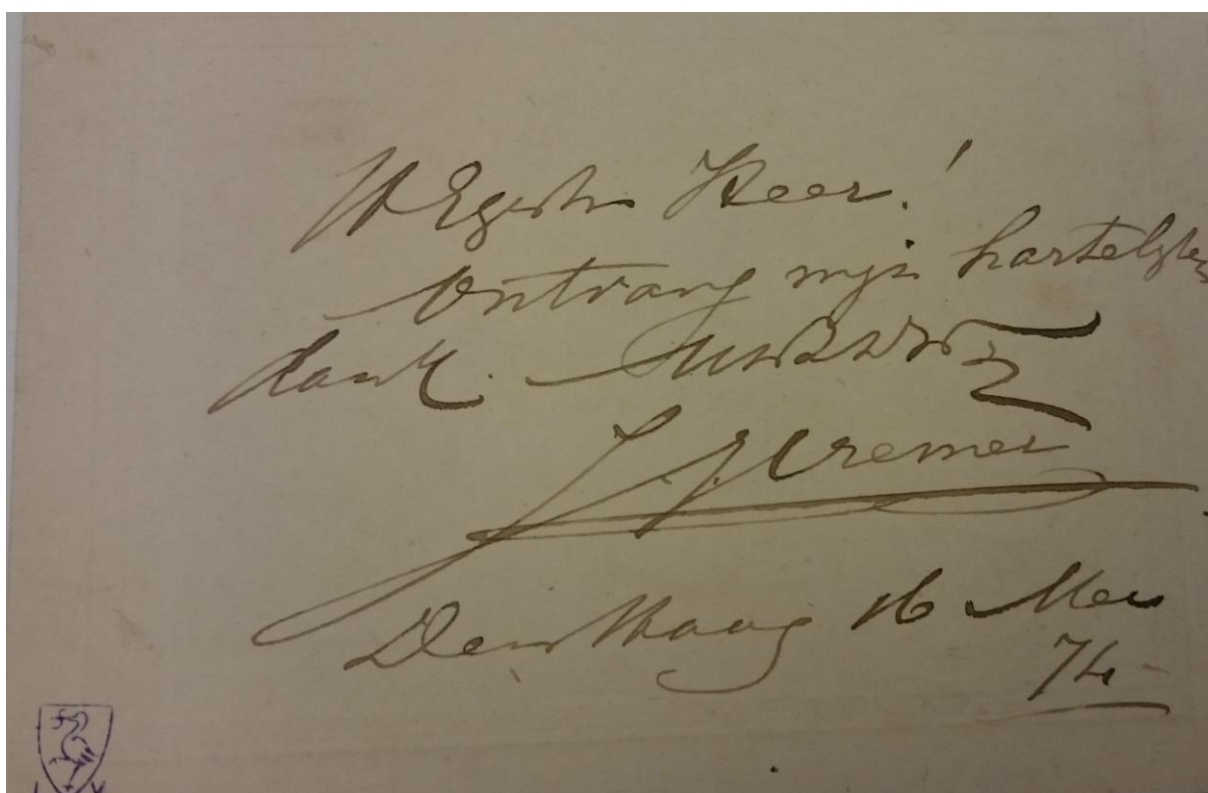 WEgeb Heer!
Ontvang mijn hartelyken
dank.
J. J. Cremer
Den Haag 16 Mei
74